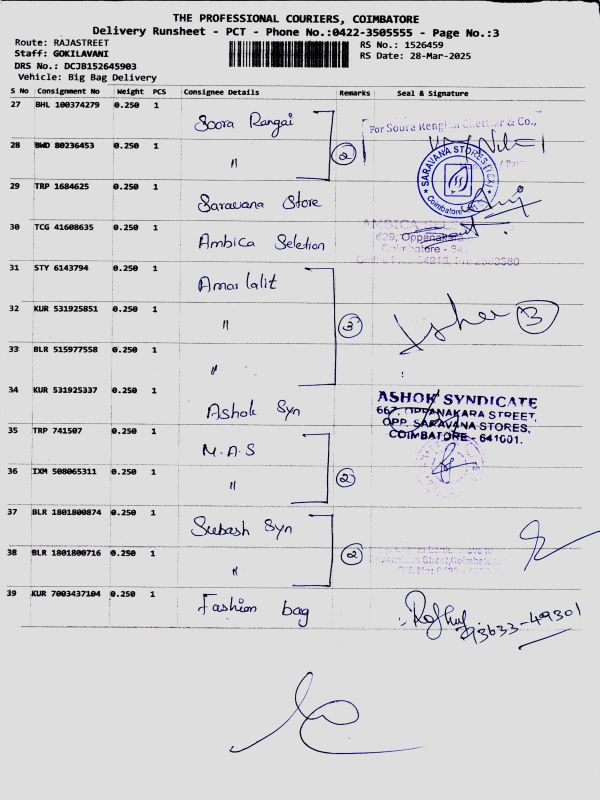 THE PROFESSIONAL COURIERS, COIMBATORE
Delivery Runsheet - PCT - Phone No.:0422-3505555 - Page No.:3
Route: RAJASTREET
RS No.: 1526459
Staff: GOKILAVANI
RS Date: 28-Mar-2025
DRS No.: DCJB152645903
Vehicle: Big Bag Delivery
S No Consignment No Weight PCS Consignee Details Remarks Seal & Signature
27 BHL 100374279 0.250 1 Soora Rangai
For Soora Rengi Chettiar & Co.,
28 BWD 80236453 0.250 1 " 2
SARAVANA STORES (TEX)
Coimbatore
29 TRP 1684625 0.250 1 Saravana Store
30 TCG 41608635 0.250 1 Ambica Seletion
AMBICA
629, Oppanakara
Coimbatore - 641
31 STY 6143794 0.250 1 Amar lalit
32 KUR 531925851 0.250 1 " 3 3
33 BLR 515977558 0.250 1 "
34 KUR 531925337 0.250 1 Ashok Syn
ASHOK SYNDICATE
667, OPPANAKARA STREET,
OPP. SARAVANA STORES,
COIMBATORE - 641001.
35 TRP 741507 0.250 1 M.A.S
36 IXM 508065311 0.250 1 " 2
37 BLR 1801800874 0.250 1 Subash Syn
38 BLR 1801800716 0.250 1 " 2
39 KUR 7003437104 0.250 1 Fashion bag
93633-49301